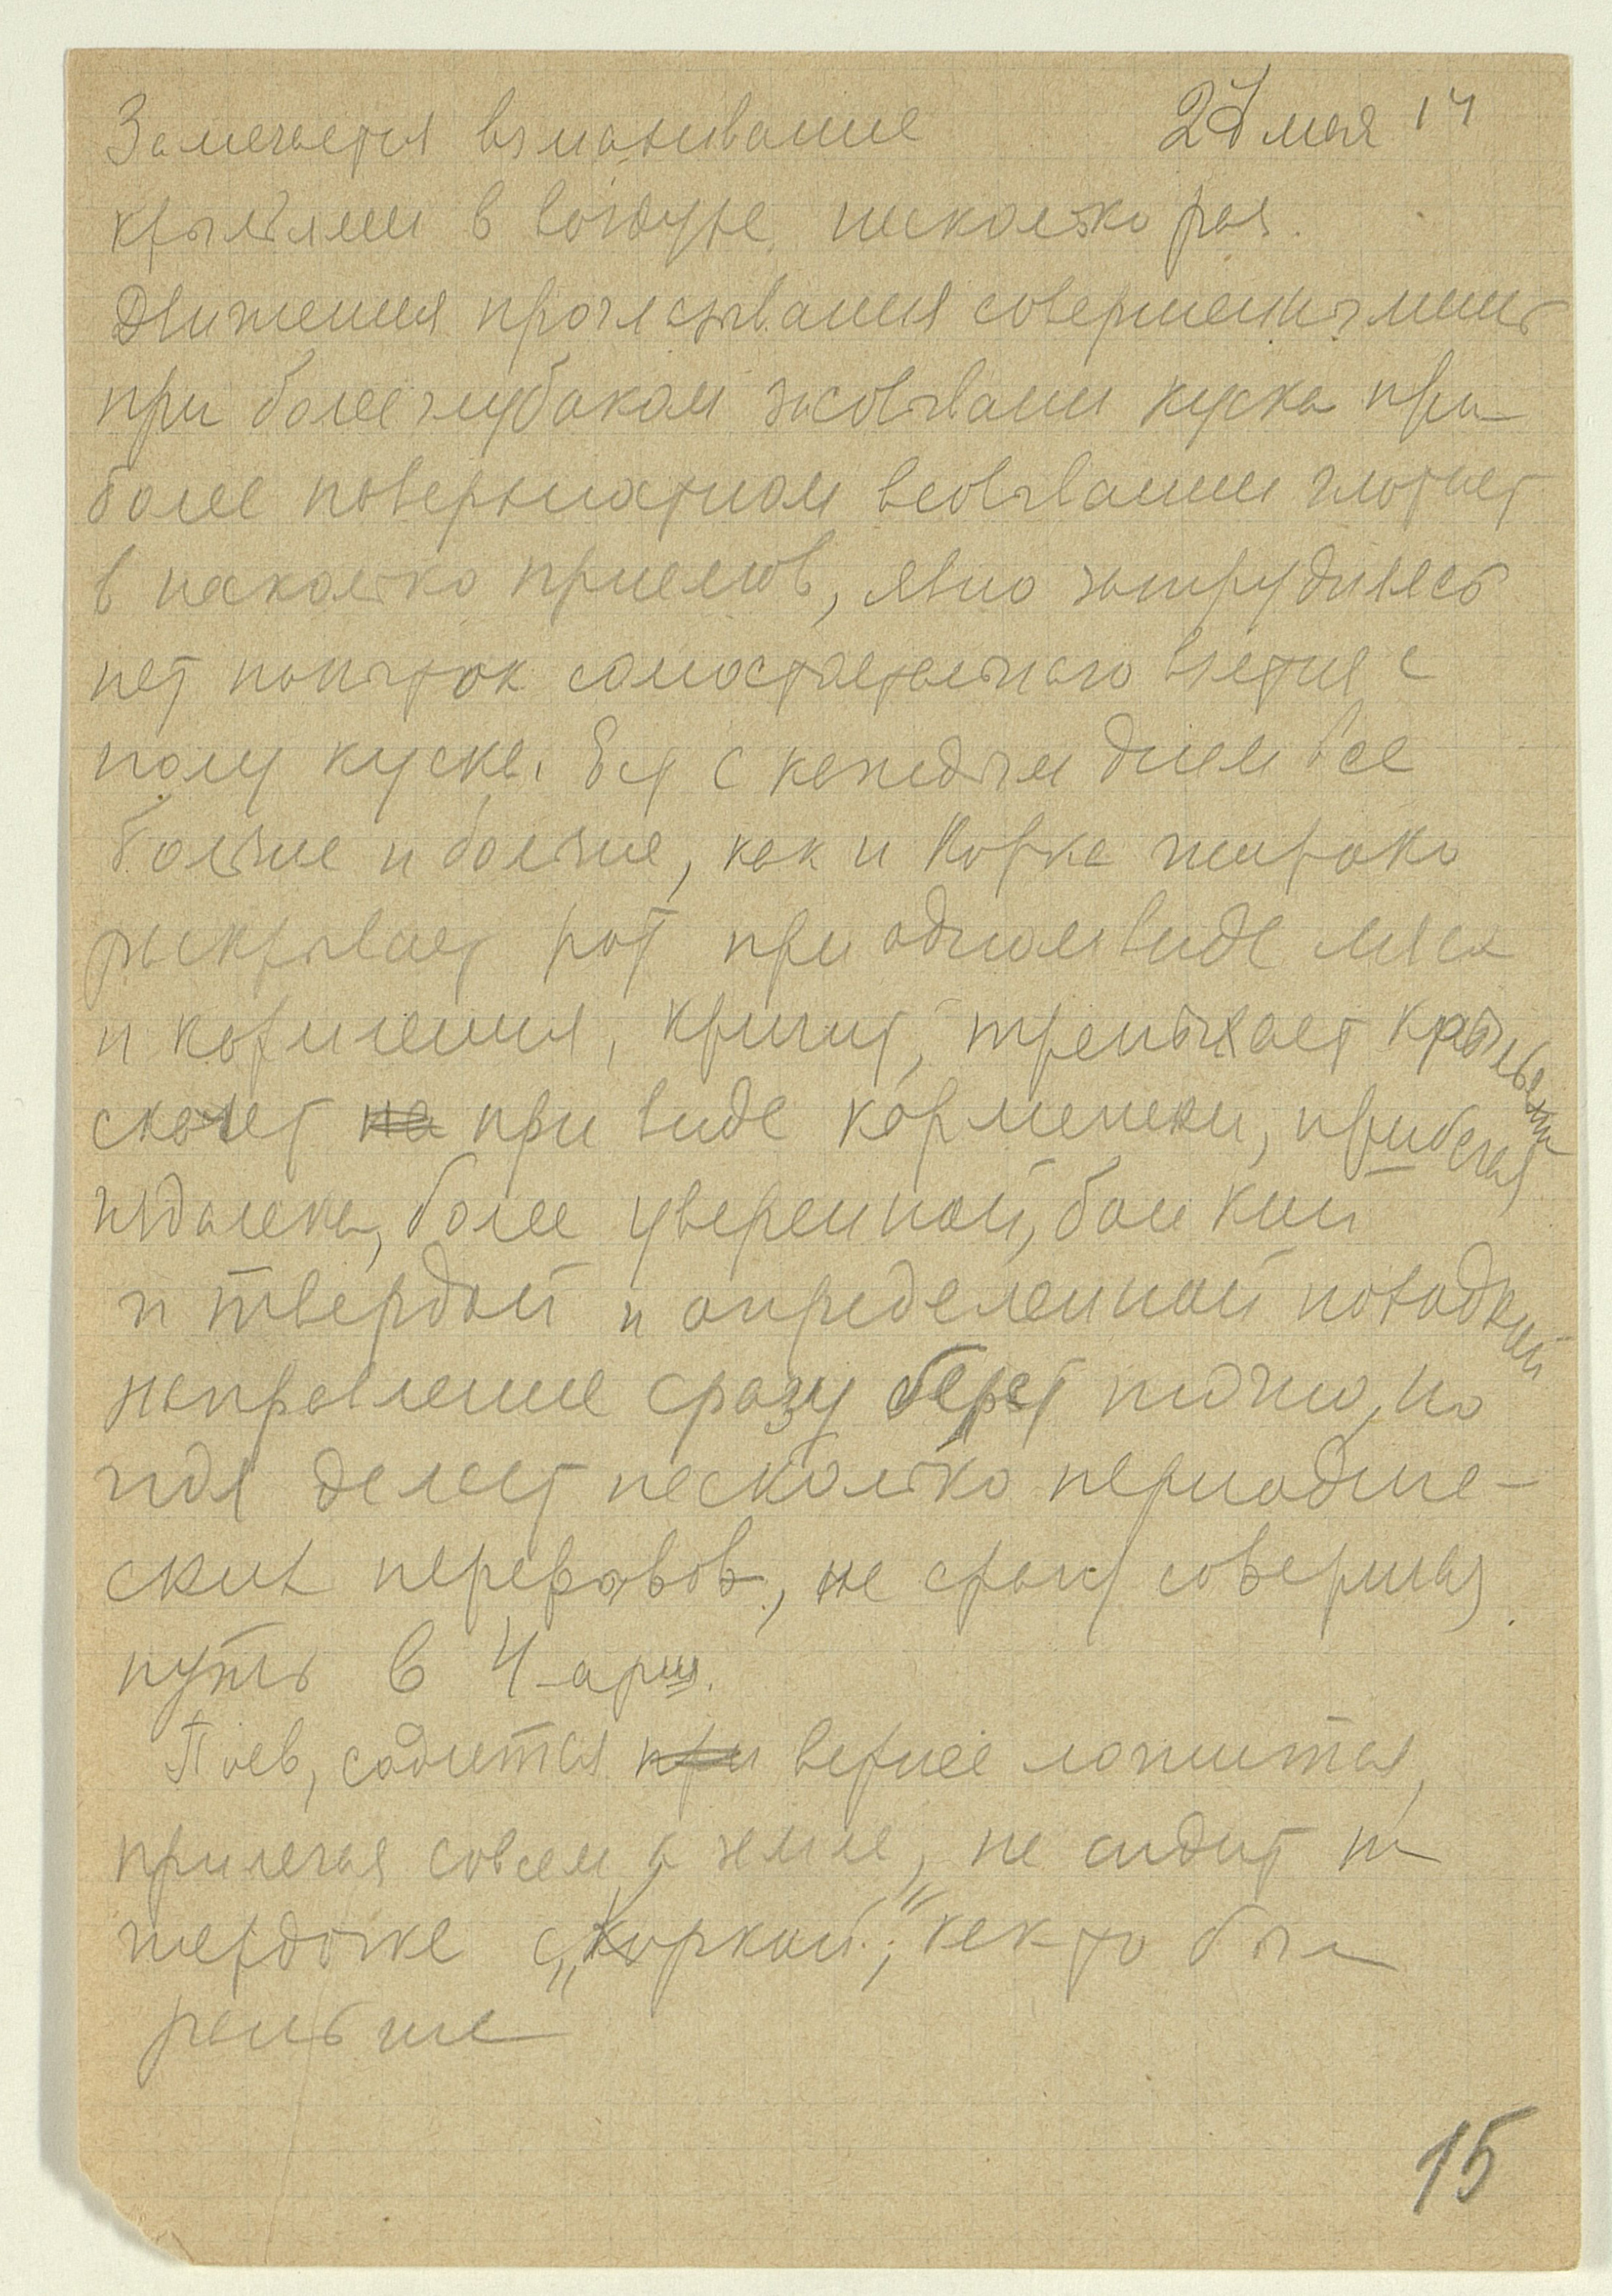 Замечается взмахивание 27 мая 14
крыльями в воздухе несколько раз.
Движения проглатывания совершенны лишь
при более глубоком засовывании куска при
более поверхностном всовывании глотает
в несколько приемов, явно затрудняясь
нет попыток самостоятельного взятия с
полу куска. Ея с каждым днем все
больше и больше, как и Корка широко
раскрывает рот при одном виде мяса
и кормления, кричит, трепыхает крыльями
скачет на при виде кормежки, прибегая
издалека, более уверенной, бойкий
и твердой и определенной повадкой
направление сразу берет точно, но
идя делает несколько периодиче-
ских перерывов, не сразу совершая
путь в 4 арш.
Поев, садится при вернее ложится,
прилегая совсем к земле, не сидит на
жердочке с „Коркой", как то было
раньше
15